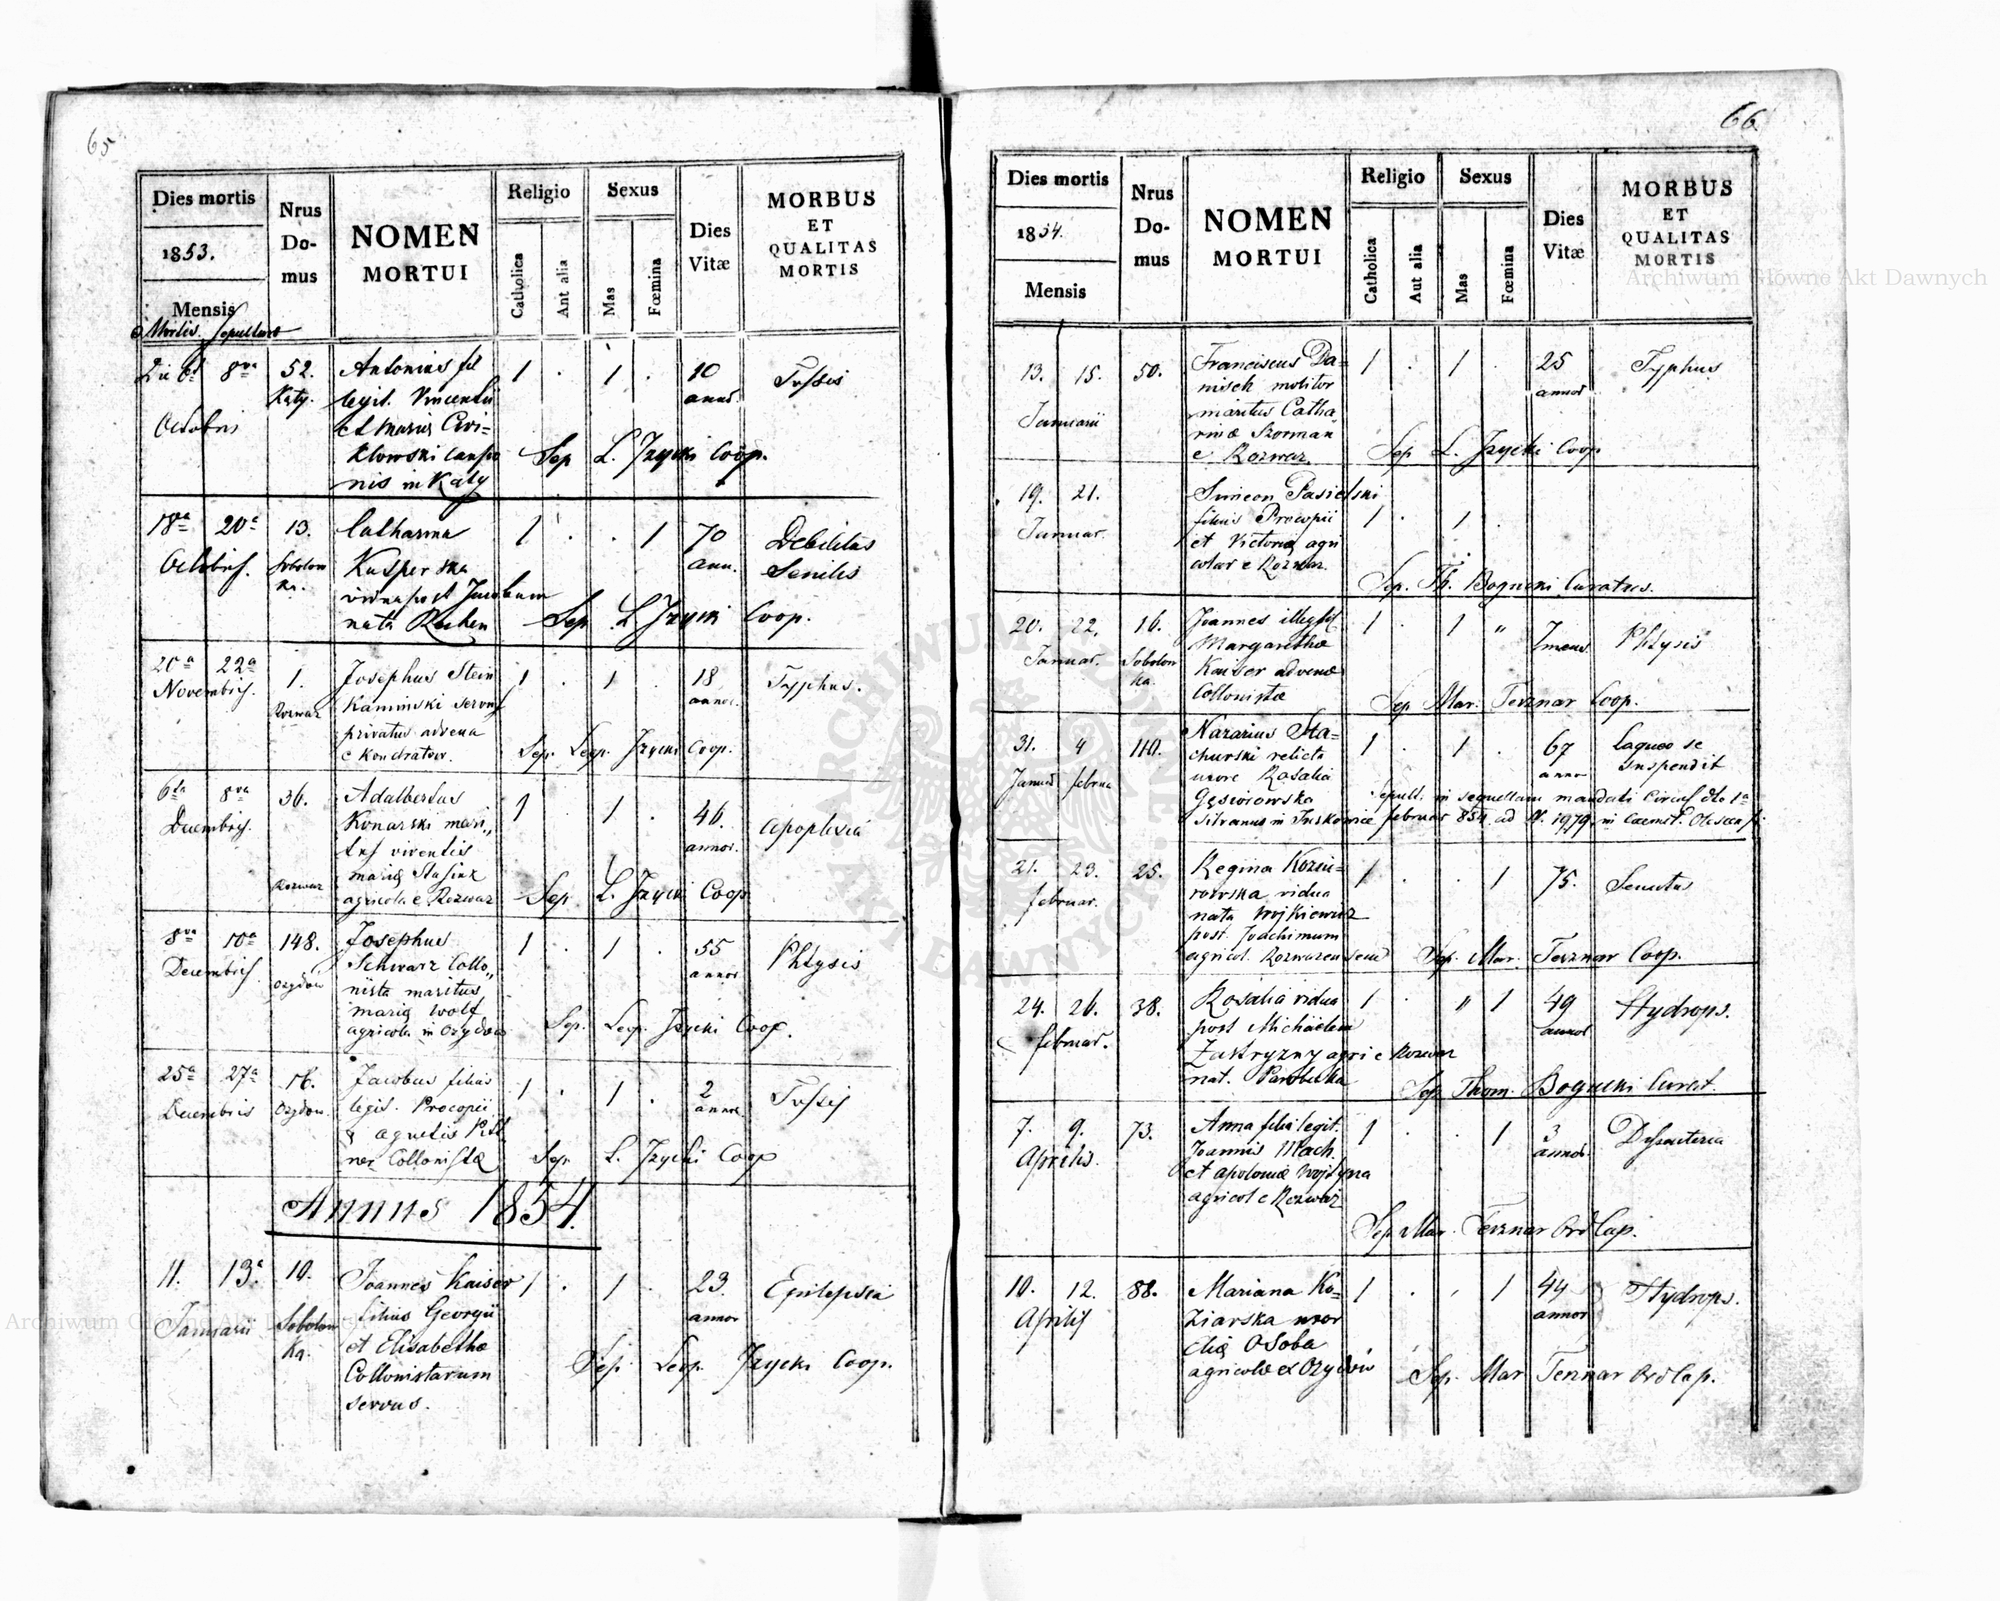 65
Dies mortis
1853.
Mensis
Mortis. Sepulturae
Nrus
Do-
mus
NOMEN
MORTUI
Religio
Catholica
Aut alia
Sexus
Mas
Fœmina
Dies
Vitæ
MORBUS
ET
QUALITAS
MORTIS
Die 6a 8va 52. Antonius fil 1 . 1 . 10 Tussis
Katy. legit. Vincentii annor
Octobris et Mariæ Cwi=
klowski caupo Sep L. Jzycki Coop.
nis in Katy
18va 20a 13. Catharina 1 . . 1 70 Debilitas
Octobris. Sobolow Kasperska ann. Senilis
ka. vidua post Jacobum
nata Sep L Jzycki Coop.
20a 22a 1. Josephus Stein 1 . 1 . 18 Typhus.
Novembris. Rozwaz Kaminski servus annor.
privatus advena
e Kondratow. Sep. Leop. Jzycki Coop.
6ta 8va 36. Adalbertus 1 . 1 . 46. Apoplexia
Decembris. Konarski mari„ annor.
tus viventis
Rozwaz mariæ Stasiuk
agricola e Rozwaz Sep L. Jzycki Coop
8va 10a 148. Josephus 1 . 1 . 55 Phtysis
Decembris. Schwarz Collo„ annor
Ozydow nista maritus
mariæ Wolf
agricola in Ozydow Sep. Leop. Jzycki Coop.
25a 27a 16. Jacobus filius 1 . 1 . 2 Tussis
Decembris Ozydow. legit. Procopii annor.
& Agnetis Kitt
ner Collonistæ Sep L. Jzycki Coop
Annus 1854.
11. 13a. 10. Joannes Kaiser 1 . 1 . 23. Epilepsia
Januarii Sobolow filius Georgii annor
ka. et Elisabethæ
Collonistarum Sep. Leop. Jzycki Coop.
servus.
66
Dies mortis
1854.
Mensis
Nrus
Do-
mus
NOMEN
MORTUI
Religio
Catholica
Aut alia
Sexus
Mas
Fœmina
Dies
Vitæ
MORBUS
ET
QUALITAS
MORTIS
13. 15. 50. Franciscus Da= 1 . 1 . 25 Typhus
nisch molitor annor
Januarii maritus Catha
rinæ Szorman
e Rozwaz. Sep L. Jzycki Coop
19. 21. Simeon Pasielski
Januar. filius Procopii 1 . 1 .
et Victoriæ agri
colar e Rozwaz. Sep. Th. Bogucki Curatus.
20. 22. 16. Joannes illegit 1 . 1 " 7 mens. Phtysis
Januar. Sobolow Margarethæ
ka. Kaiser advenæ
Collonistæ Sep Mar. Terznar Coop.
31. 4 110. Nazarius Sta= 1 . 1 . 67 Laqueo se
Januar februa churski relicta annor suspendit
uxore Rosalia
Gęsiorowska Sepult. in sequellam mandati Circul dto 1a
Silvanus in Juskowice februar 854 ad N. 1979. in Caemet. Olescensi
21. 23. 25. Regina Koziu= 1 . . 1 75. Senectus
februar. rowska vidua
nata Wojkiewicz
post Joachimum
agricol. Rozwazensem Sep. Mar. Terznar Coop.
24. 26. 38. Rosalia vidua 1 . " 1 49 Hydrops.
februar. post Michaelem annor
Zastryzny agri e Rozwaz
nat. Parobecka Sep Thom. Bogucki Curat.
7. 9. 73. Anna filia legit. 1 . . 1 3 Dysenteria
Aprilis. Joannis Mach. annor.
et Apoloniæ Wojtyna
agricol e Rozwaz
Sep Mar. Terznar Ord Cap.
10. 12. 88. Mariana Ko= 1 . . 1 44 Hydrops.
Aprilis ziarska uxor annor
Eliæ Osoba
agricolæ ex Ozydow Sep. Mar Terznar Ord Cap.
Archiwum Główne Akt Dawnych
ARCHIWUM GŁÓWNE
AKT DAWNYCH
Archiwum Główne Akt Dawnych